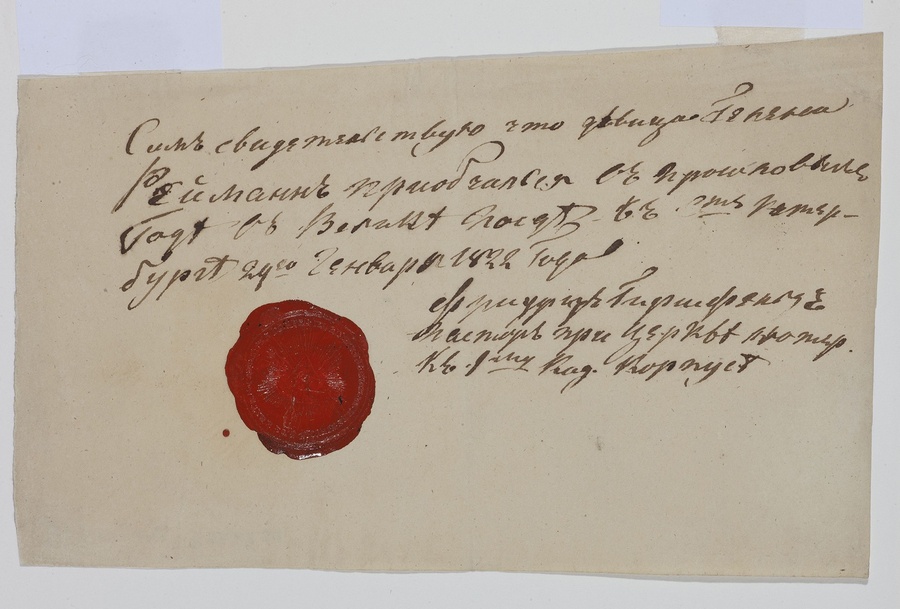 Симъ свидетельствую что дѣвица Гелена
Рейманнъ приобчался въ прошковомъ
Годѣ въ Великѣ Постѣ въ Stъ Петер-
бургѣ 24го Генваря 1822 Года
Фридрихъ Гиршфельдъ
Пасторъ при Церквѣ лютер.
къ 1му Кад. Корпусѣ